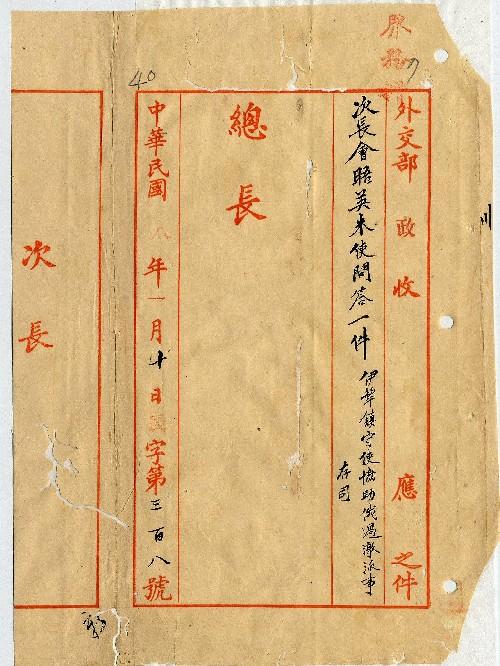 40
外交部政收應之件
次長會晤英朱使問答一件
伊犂鎮守使協助俄過激派事
存司
總長
中華民國八年一月十日 字第三百八號
次長